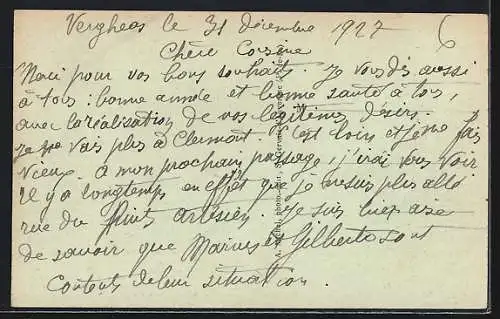 Vergheas le 31 décembre 1927
6
Chère Cousine
Merci pour vos bons souhaits. Je vous dis aussi
à tous : bonne année et bonne santé à tous,
avec la réalisation de vos légitimes désirs.
Je ne vais plus à Clermont. C'est loin et je me fais
vieux. à mon prochain passage, j'irai vous voir
Il y a longtemps en effet que je ne suis plus allé
rue du Puits Artésien. Je suis bien aise
de savoir que Marius et Gilberte sont
contents de leur situation.